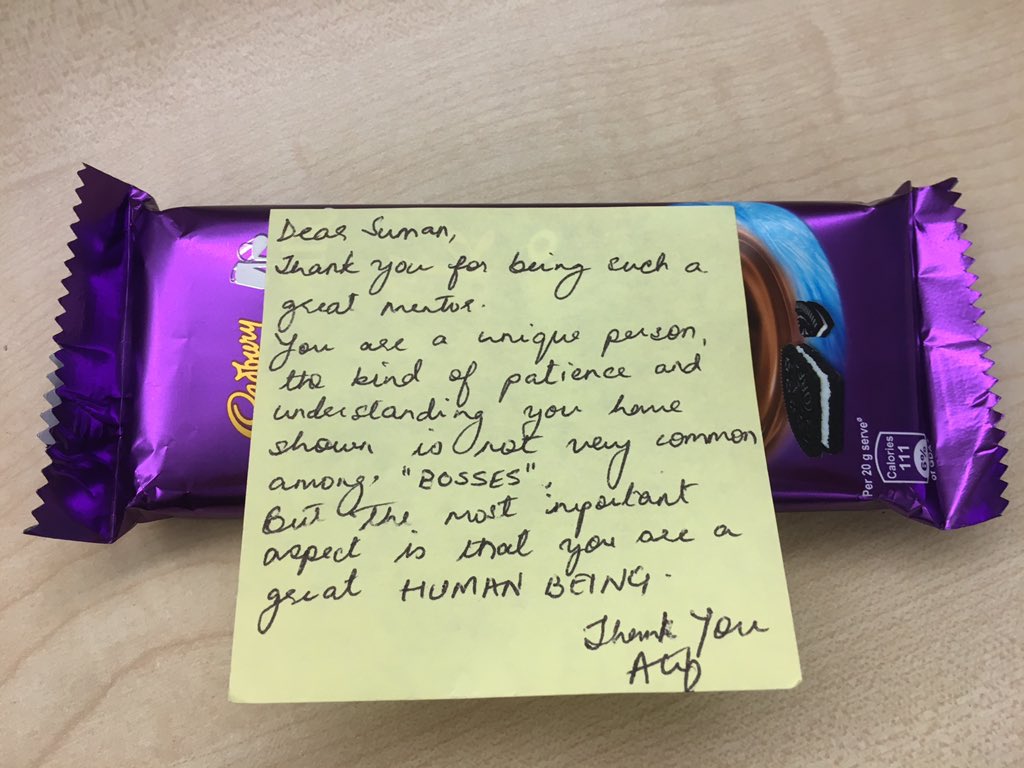 Dear Suman,
Thank you for being such a
great mentor.
You are a unique person,
the kind of patience and
understanding you have
shown is not very common
among "BOSSES".
But The most important
aspect is that you are a
great HUMAN BEING.
Thank You
Atif
Cadbury
Per 20 g serve*
Calories
111
6%
of GDA